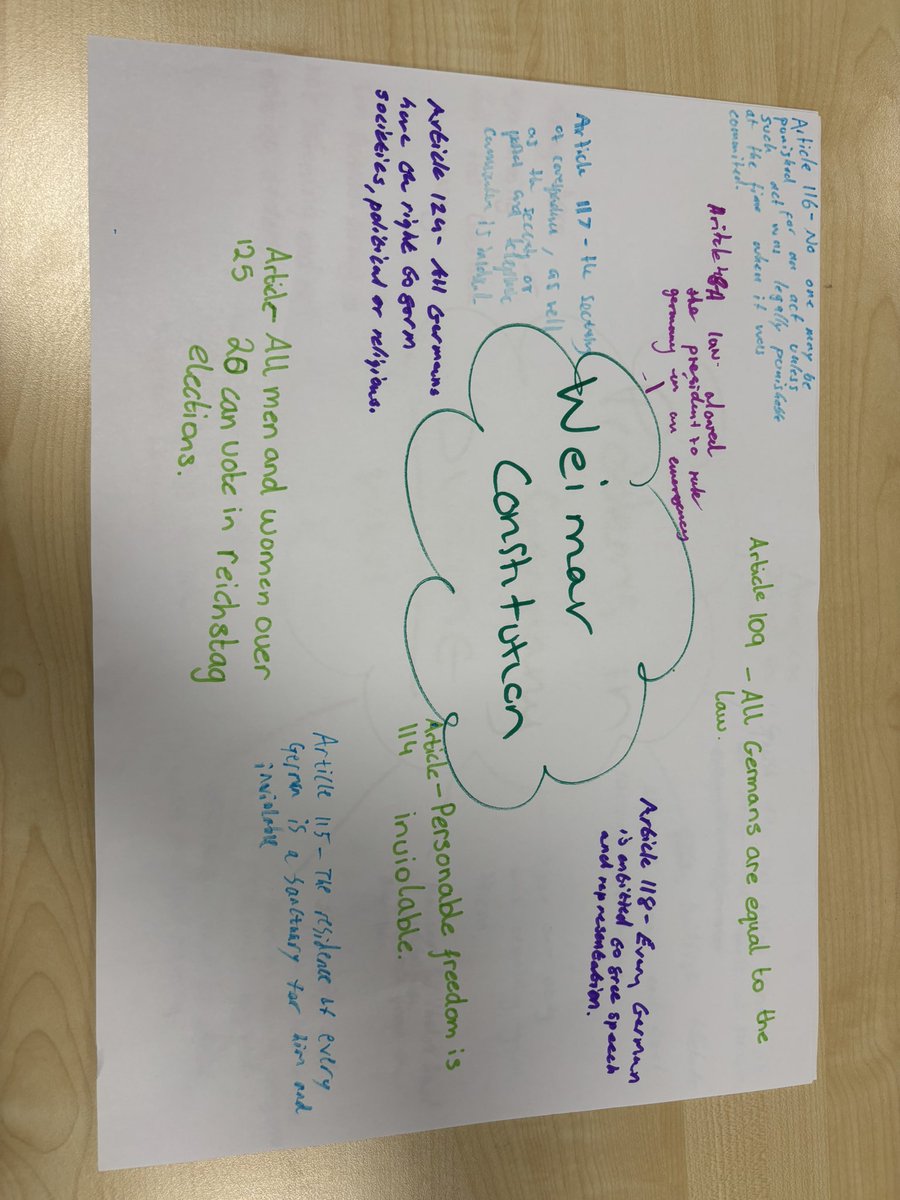 Article 116 - No one may be
punished for an act unless
such act was legally punishable
at the time when it was
commited.
Article 109 - All Germans are equal to the
law.
Aritcle 48A law - alowed
the president to rule
germany in an emergency
Article 118 - Every German
is entitled to free speech
and representation.
Article 117 - the secrecy
of correspondence, as well
as the secrecy of
postal and telephone
is
Weimar
Constitution
Article 124 - All Germans
have the right to form
societies, political or religious.
Article - Personable freedom is
114 inviolable.
Article - All men and women over
125 20 can vote in reichstag
elections.
Article 115 - The residence of every
German is a sanctuary for him and
inviolable